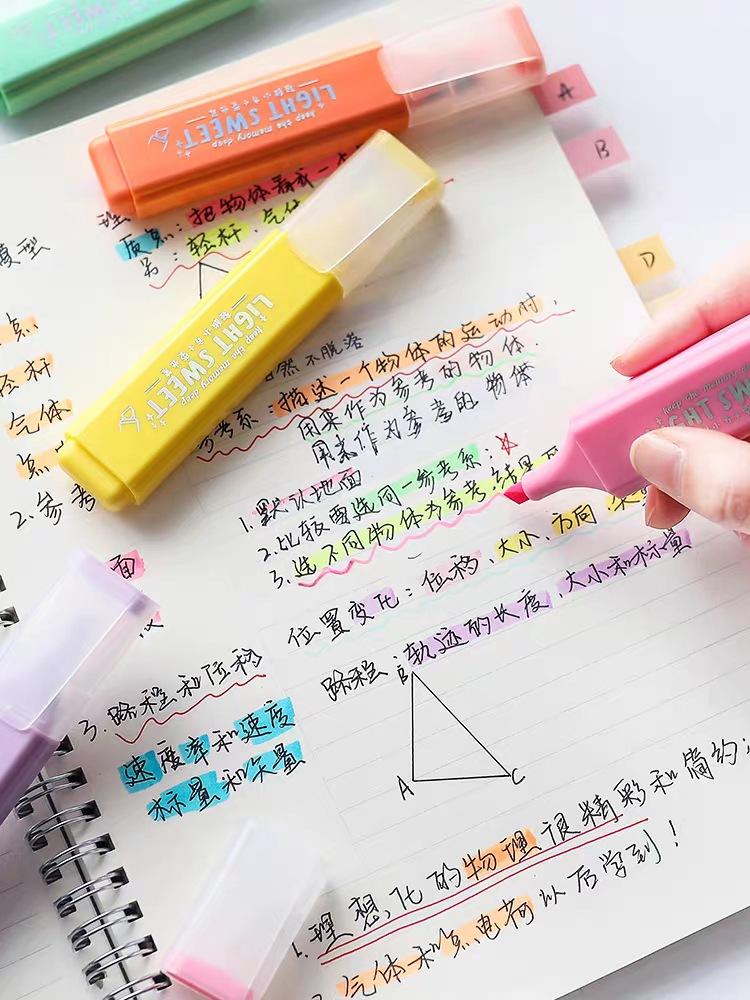 LiGHT SWEET
keep the memory deep
A
B
D
质点:把物体看成一个
另:轻杆.气体
模型
点
轻杆
气体
2.参考
然不脱落
参考系:描述一个物体的运动时,
用来作为参考的物体.
用来作为参考的物体
1.默认地面
2.比较要选同一参考系:
3.选不同物体为参考,结果
位置变化:位移、大小、方向、
路程:轨迹的长度,大小和标量
3.路程和位移
速度率和速度
标量和矢量
B
A
C
1.理想化的物理很精彩和简约;
气体和点电荷以后学到!
LiGHT SWEET
keep the memory deep
LiGHT SWEET
keep the memory deep